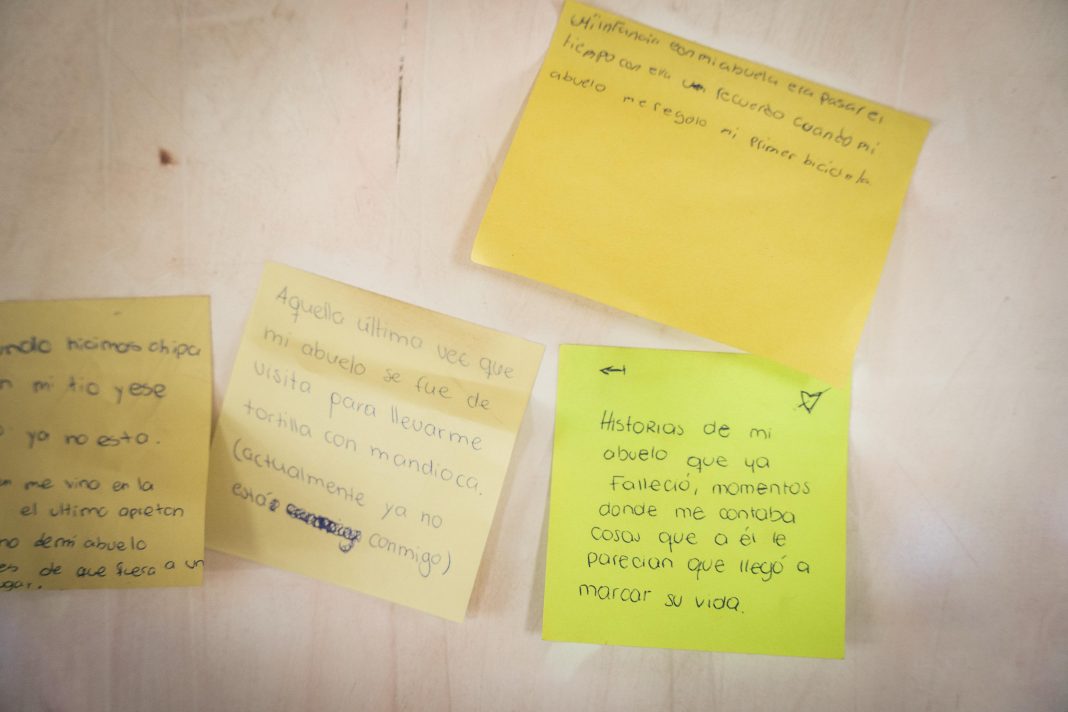 Mi infancia con mi abuela era pasar el
tiempo con era un recuerdo cuando mi
abuelo me regalo mi primer bicicleta
ndo hicimos chipa
n mi tio y ese
ya no esta.
n me vino en la
el ultimo apreton
no de mi abuelo
es de que fuera a un
ugar.
Aquella última vez que
mi abuelo se fue de
visita para llevarme
tortilla con mandioca.
(actualmente ya no
está conmigo)
Historias de mi
abuelo que ya
Falleció, momentos
donde me contaba
cosas que a él le
parecian que llegó a
marcar su vida.